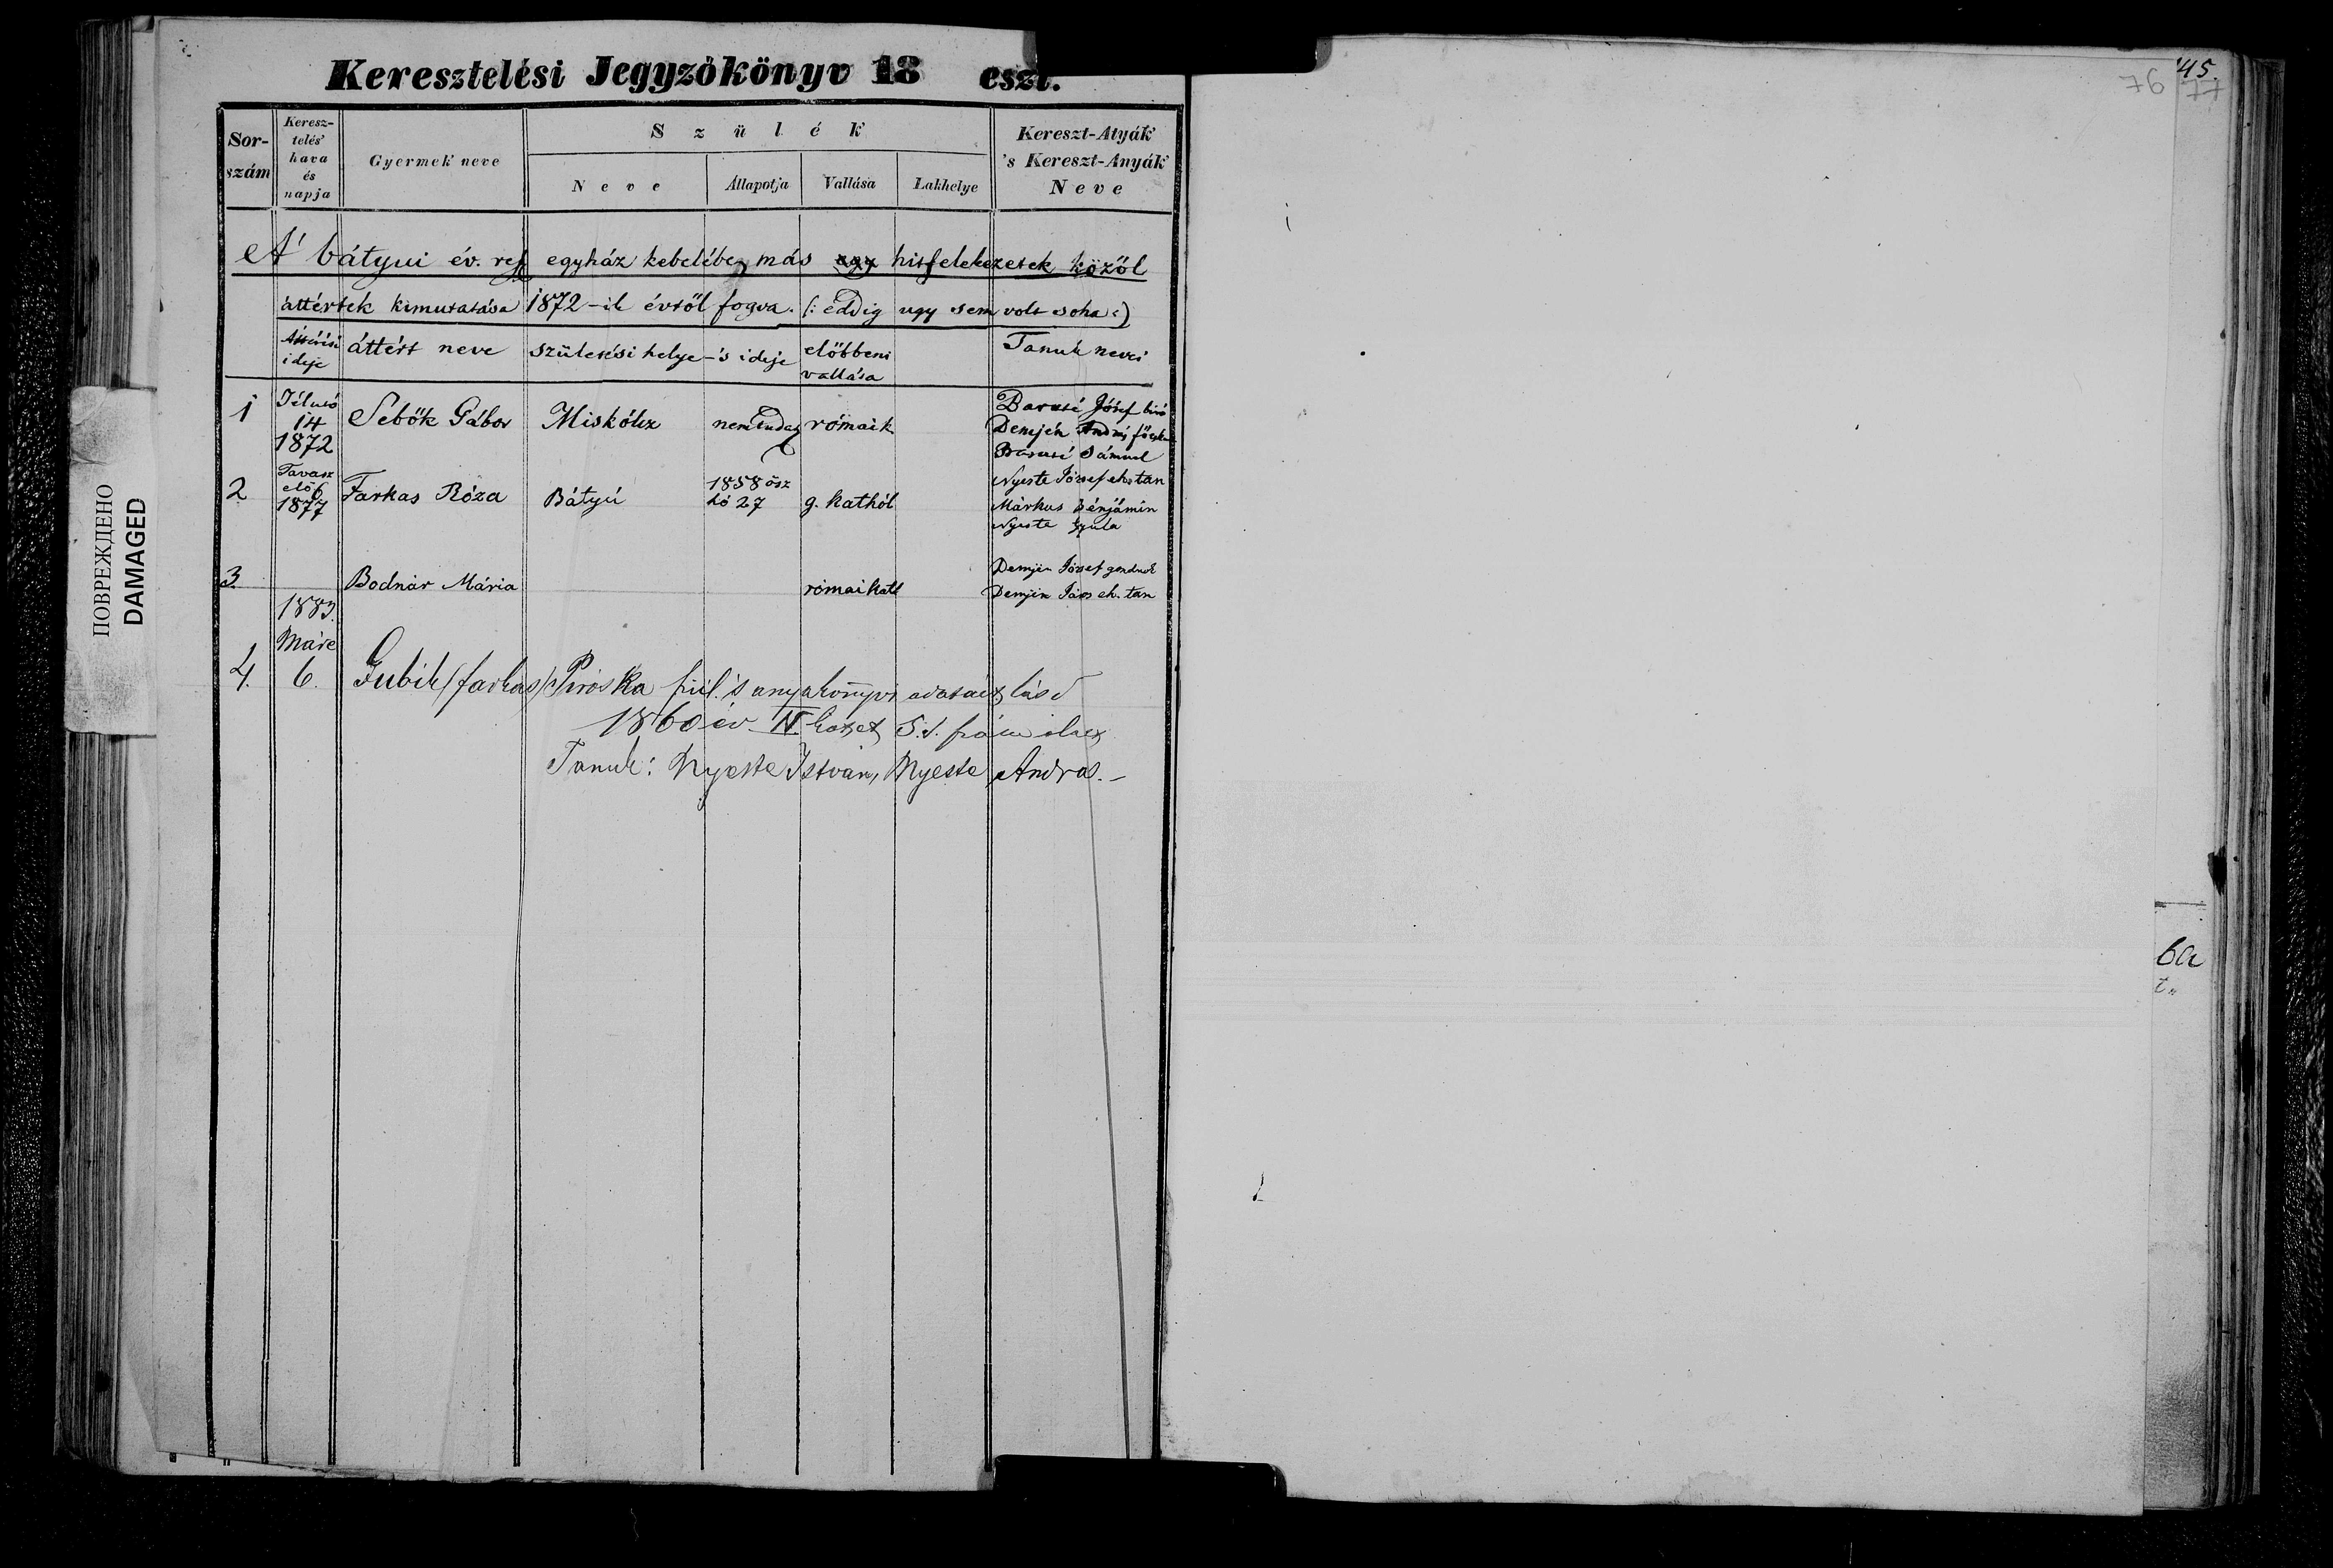 Keresztelési Jegyzőkönyv 18 eszt.
Sor-szám
Keresz-telés' hava és napja
Gyermek' neve
Szülék
Neve
Állapotja
Vallása
Lakhelye
Kereszt-Atyák 's Kereszt-Anyák Neve
A' bátyui év. ref egyház kebelében más hitfelekezetek közöl
áttértek kimutatása 1872-ik évtől fogva. (: eddig ugy sem volt soha :)
Áttérési ideje áttért neve születési helye -'s ideje előbbeni vallása Tanuk nevei
1 Télutó 14 1872 Sebők Gábor Miskólcz nem tudat római k
József biró
Demjén András
Sámuel
2 Tavasz elő 6 1877 Farkas Róza Bátyú 1858 ősz hó 27 g. kathol
Nyeste József eh. tan
Márkus Bénjámin
Nyeste Gyula
3 Bodnár Mária római kath
Demjén József gondnok
Demjén János eh. tan
1883.
Márc
4. 6. Gubik (farkas) Piroska szül. 's anyakönyvi adatait lásd
1860 év IV. kötet 5.d. szám alatt
Tanuk: Nyeste István, Nyeste András. –
ПОВРЕЖДЕНО
DAMAGED
76 77
45.
ba
t.